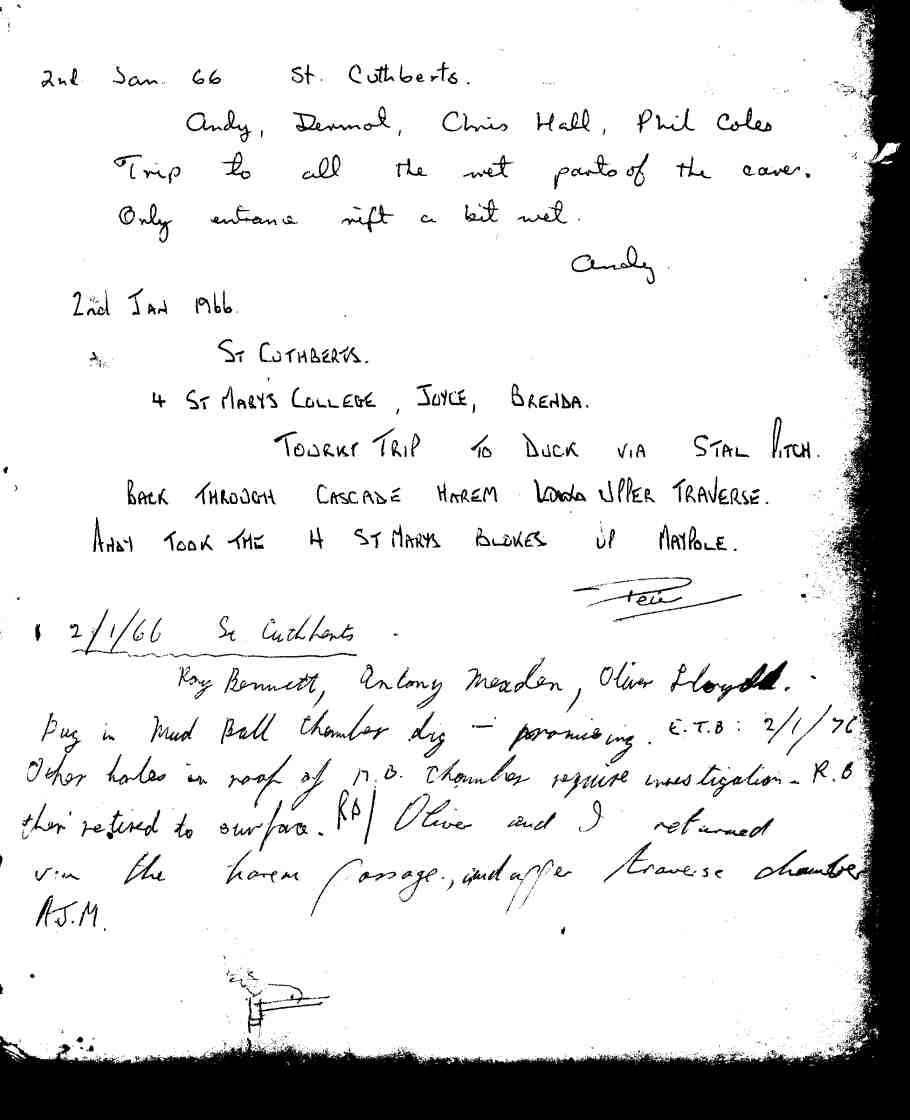 2nd Jan. 66 St. Cuthberts.
Andy, Dermot, Chris Hall, Phil Coles
Trip to all the wet parts of the caves.
Only entrance rift a bit wet.
Andy.
2nd JAN 1966.
ST CUTHBERTS.
4 ST MARYS COLLEGE, JOYCE, BRENDA.
TOURKY TRIP TO DUCK VIA STAL PITCH.
BACK THROUGH CASCADE HAREM UPPER TRAVERSE.
ANDY TOOK THE 4 ST MARYS BLOKES UP MAYPOLE.
Pete
2/1/66 St Cuthberts
Roy Bennett, Antony Meaden, Oliver Lloyd.
Dug in Mud Ball Chamber dig – promising. E.T.B: 2/1/76
Other holes in roof of M.B. Chamber require investigation – R.B
then retired to surface. RB/ Oliver and I returned
via the harem passage, and upper traverse chamber
A.J.M.